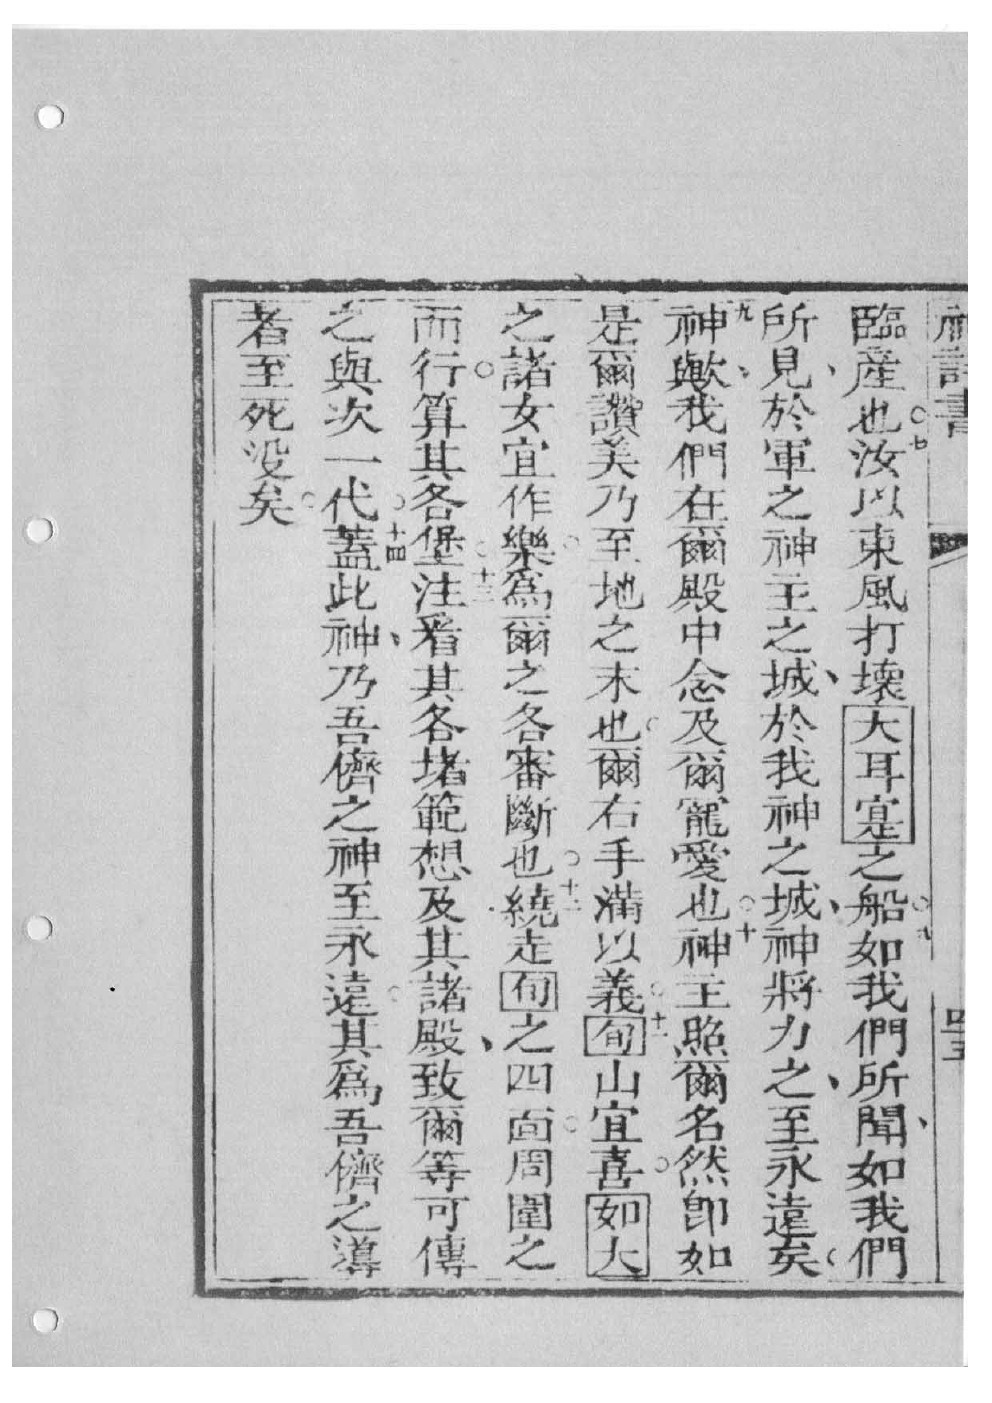 神詩書
四五
臨産也○七汝以東風打壞大耳寔之船○八如我們所聞如我們
所見於軍之神主之城於我神之城神將力之至永遠矣
九神歟我們在爾殿中念及爾寵愛也○十神主照爾名然卽如
是爾讚美乃至地之末也爾右手滿以義○十一旬山宜喜如大
之諸女宜作樂爲爾之各審斷也○十二繞走旬之四面周圍之
而行算其各堡○十三注看其各堵範想及其諸殿致爾等可傳
之與次一代○十四蓋此神乃吾儕之神至永遠其爲吾儕之導
者至死没矣